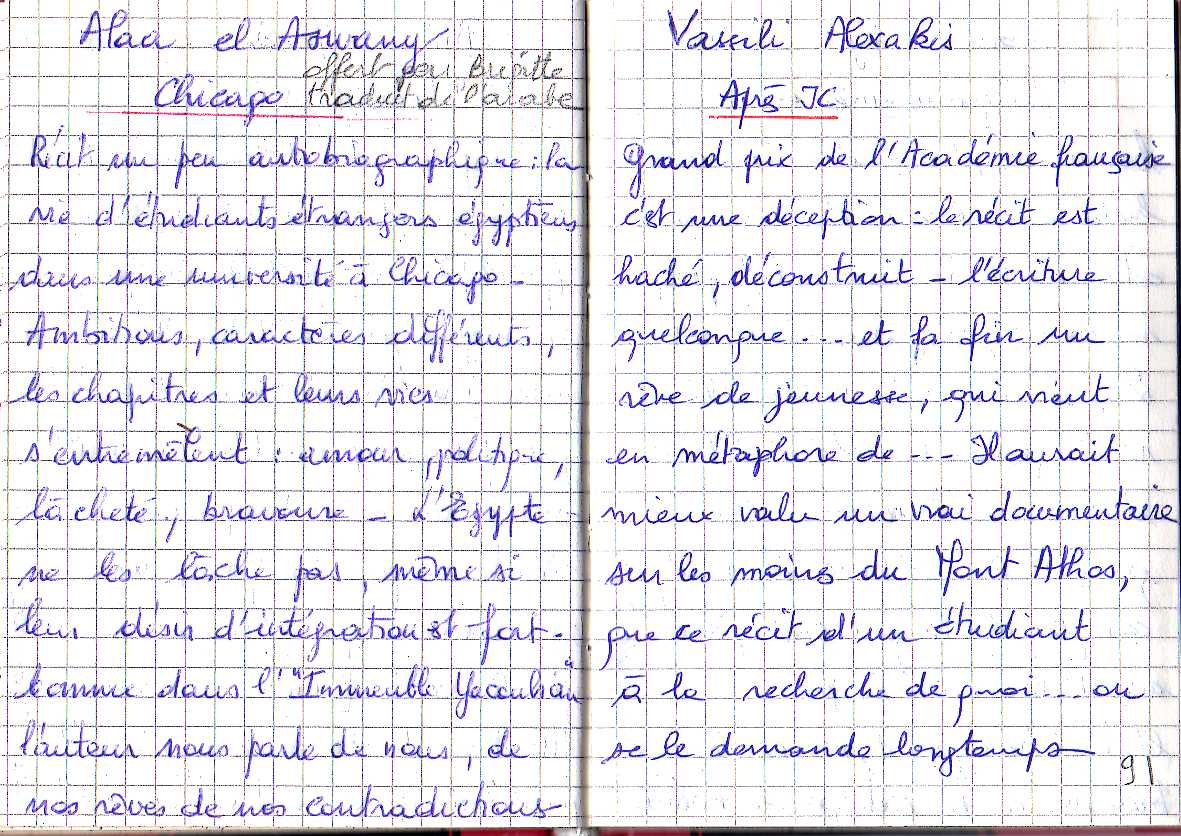 Alaa el Aswany
offert par Brigitte
Chicago traduit de l'arabe
Récit un peu autobiographique : la
vie d'étudiants étrangers égyptiens
dans une université à Chicago -
Ambitions, caractères différents,
les chapitres et leurs vies
s'entremêlent : amour, politique,
lâcheté, bravoure - L'Egypte
ne les lâche pas, même si
leur désir d'intégration est fort.
Comme dans l'"Immeuble Yacoubian"
l'auteur nous parle de nous, de
nos rêves de nos contradictions
Vassili Alexakis
Après JC
Grand prix de l'Académie française
c'est une déception : le récit est
haché, déconstruit - l'écriture
quelconque ... et la fin un
rêve de jeunesse, qui vient
en métaphore de --- Il aurait
mieux valu un vrai documentaire
sur les moins du Mont Athos,
que ce récit d'un étudiant
à la recherche de quoi ... on
se le demande longtemps
91